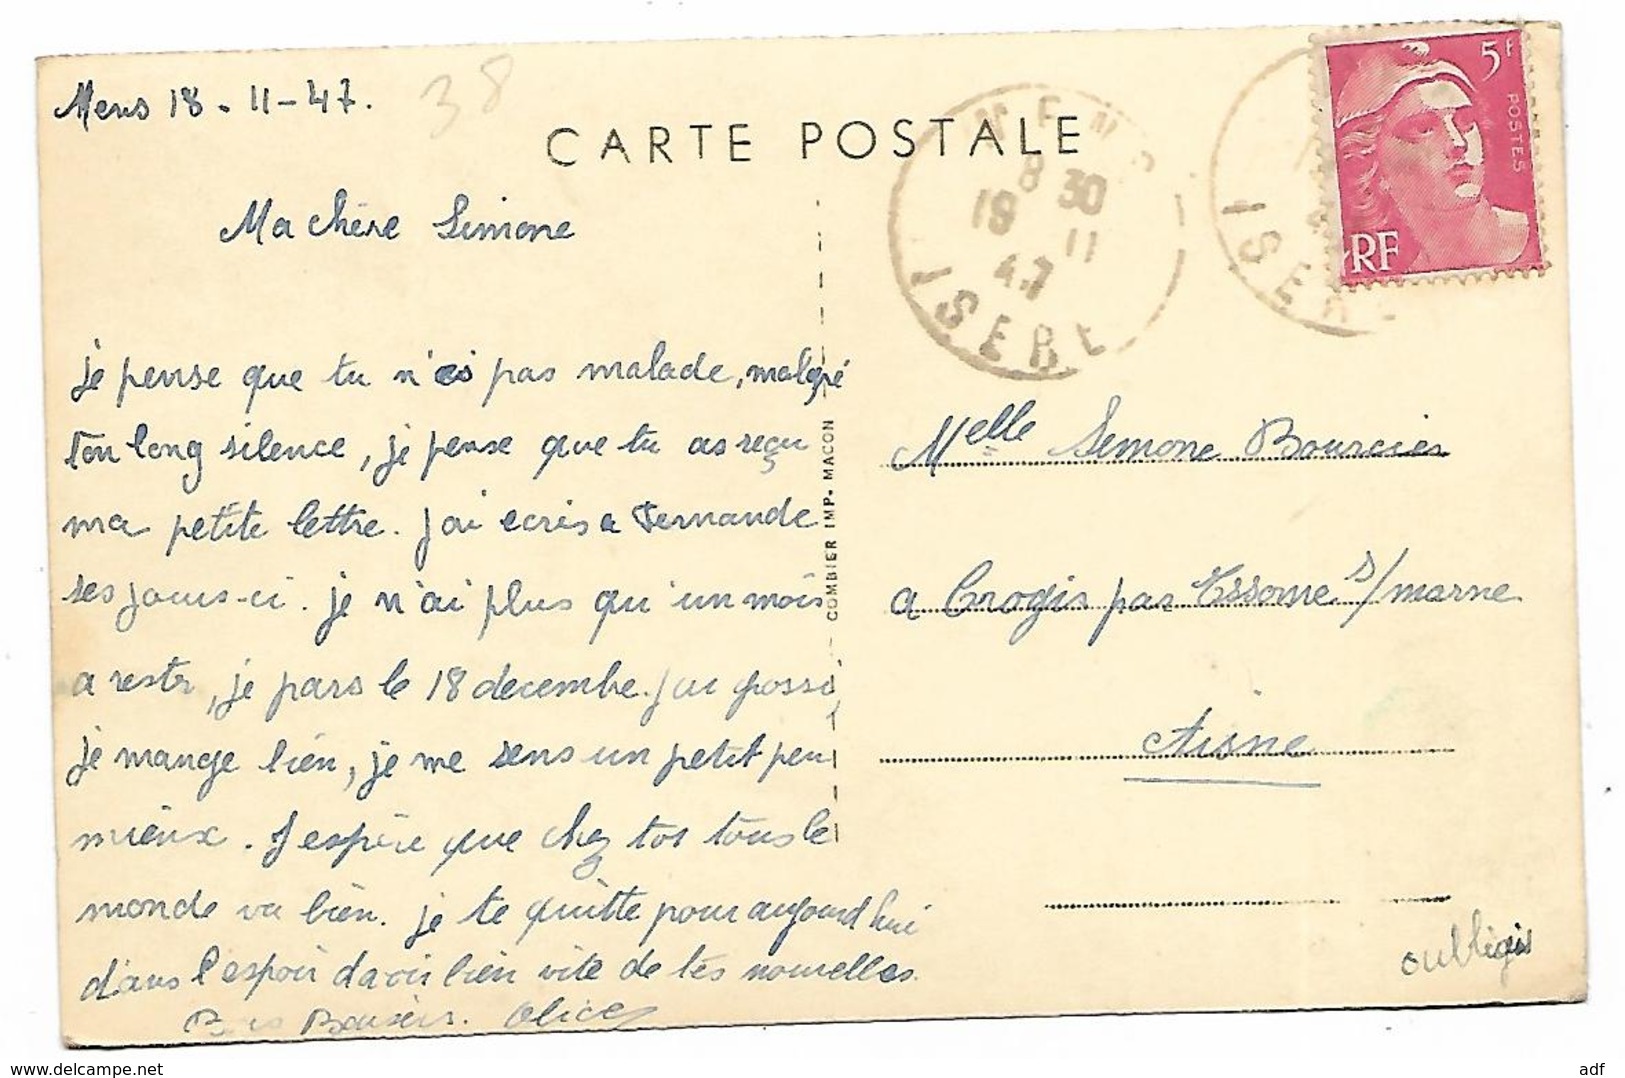 Mens 18 - 11 - 47.
38
CARTE POSTALE
MENS
8 30
19 11
47
ISERE
ISERE
5f
POSTES
RF
Ma chère Simone
je pense que tu n'es pas malade, malgré
ton long silence, je pense que tu as reçu
ma petite lettre. J'ai ecris a Fernande
ses jours-ci. je n'ai plus qu'un mois
a reste, je pars le 18 decembe. J'ai grossi
je mange bien, je me sens un petit peu
mieux. J espère que chez toi tous le
monde va bien. je te quitte pour aujourd hui
dans l'espoir d avoir bien vite de tes nouvelles.
Bons Baisers. Alice
COMBIER IMP. MACON
Melle Simone Bourcier
a Crogis par Essome s/marne
Aisne
oulligis
www.delcampe.net
adf